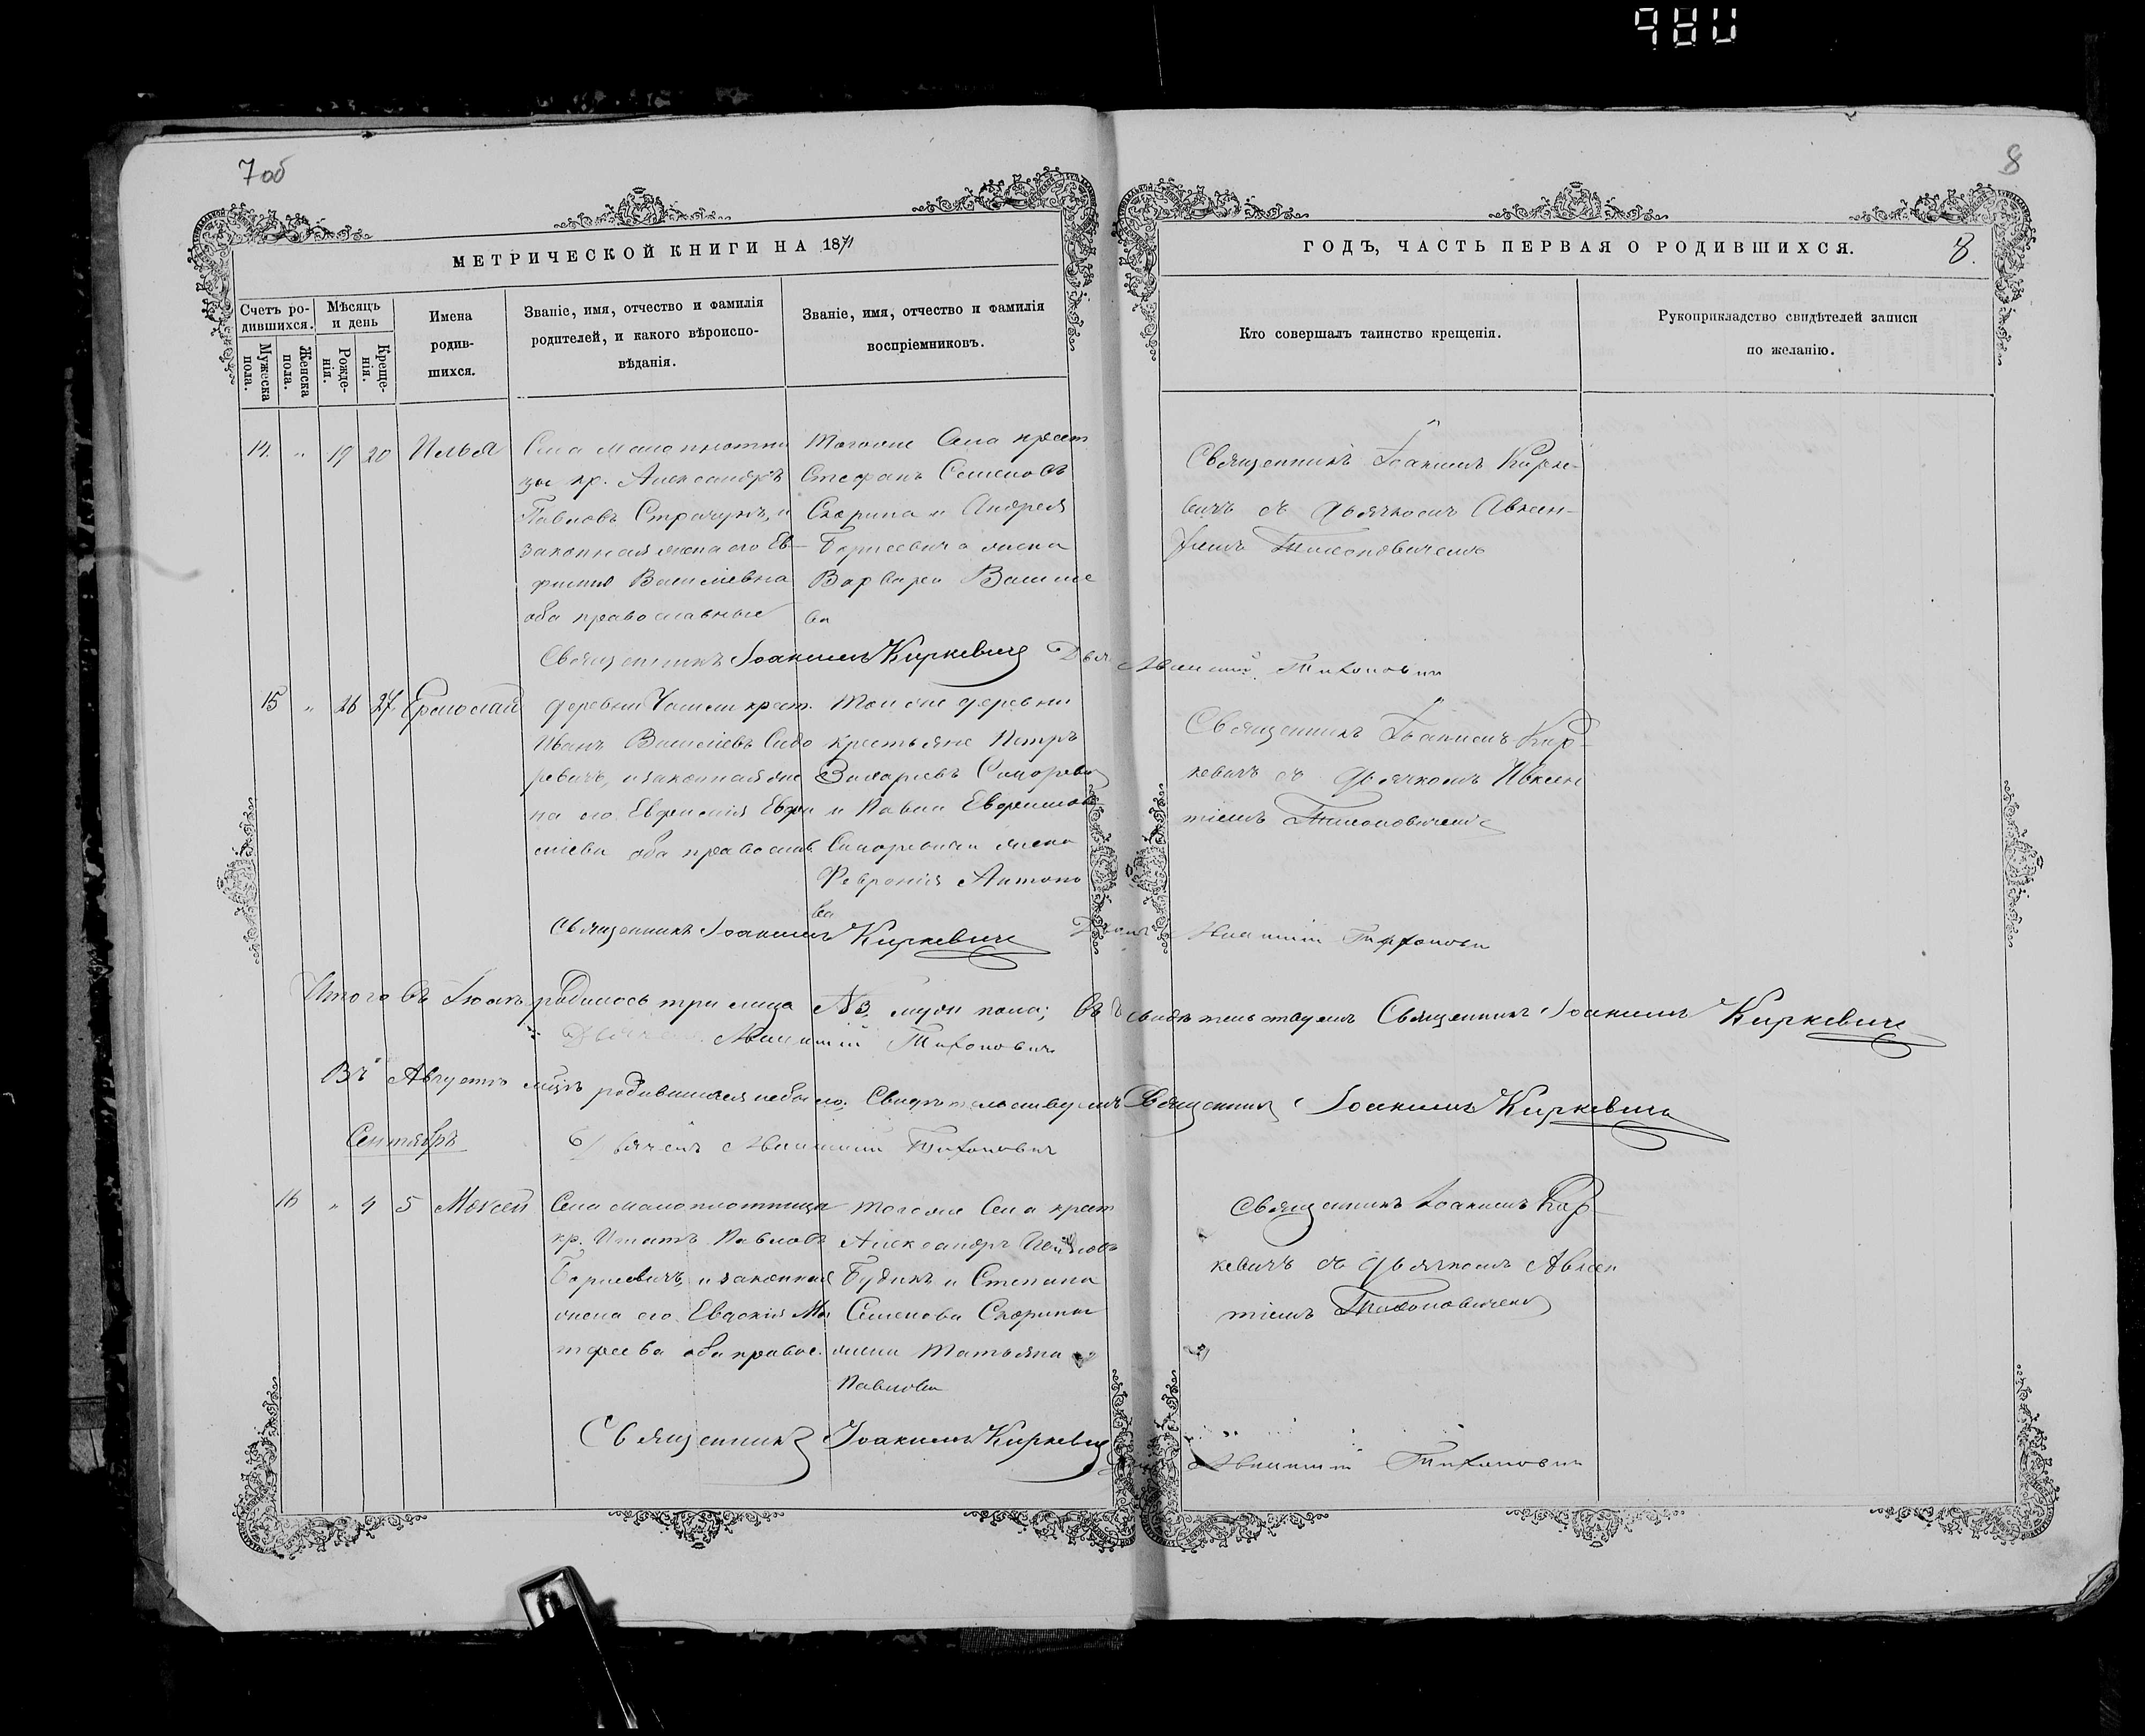 7 об
8
МЕТРИЧЕСКОЙ КНИГИ НА 1871
ГОДЪ, ЧАСТЬ ПЕРВАЯ О РОДИВШИХСЯ.
8.
Счетъ ро-
дившихся.
Мужеска
пола.
Женска
пола.
Мѣсяцъ
и день
Рожде-
нія.
Креще-
нія.
Имена
родив-
шихся.
Званіе, имя, отчество и фамилія
родителей, и какого вѣроиспо-
вѣданія.
Званіе, имя, отчество и фамилія
воспріемниковъ.
Кто совершалъ таинство крещенія.
Рукоприкладство свидѣтелей записи
по желанію.
14. " 19 20 Илья
Села малоплотни
цы кр. Александръ
Павловъ и
законная жена его Ев-
фимія Василіевна
оба православные
Тогоже Села крест
Стефанъ Семеновъ
Скорина и Андрея
Борисевича жена
Варвара Василіе
ва
Священникъ Іоакимъ Кирке-
вичъ съ дьячкомъ Авксен-
тіемъ Тихоновичемъ
Священникъ Іоакимъ Киркевичъ
Тихоновичъ
15 " 26 27 Ермолай
деревни крест.
Иванъ Василіевъ Сидо
ревичъ, и законная же
на его Евфимія Евфи
міева оба правосл
Той же деревни
крестьяне Петръ
Захаріевъ
и Павла
жена
Феврония Антоно
ва
Священникъ Іоакимъ Кир-
кевичъ съ дьячкомъ Авксен
тіемъ Тихоновичемъ
Священникъ Іоакимъ Киркевичъ
Тихоновичъ
Итого въ Іюлѣ родилось три лица №3. муж пола; въ свидѣтельствуемъ Священникъ Іоакимъ Киркевичъ
Дьячекъ Авксентій Тихоновичъ
Въ Августѣ мцѣ родившихся небыло. Свидѣтельствуемъ Священникъ Іоакимъ Киркевичъ
Сентябрь
Дьячекъ Авксентій Тихоновичъ
16 " 4 5 Моисей
Села малоплотницы
кр. Игнатъ Павловъ
Борисевичъ, и законная
жена его Евдокія Ма
тфеева оба правос.
Тогоже Села крест
Александръ
Будикъ и Степана
Семенова Скорины
жена Татьяна
Павлова
Священникъ Іоакимъ Кир-
кевичъ съ дьячкомъ Авксен
тіемъ Тихоновичемъ
Священникъ Іоакимъ Киркевичъ
Авксентій Тихоновичъ